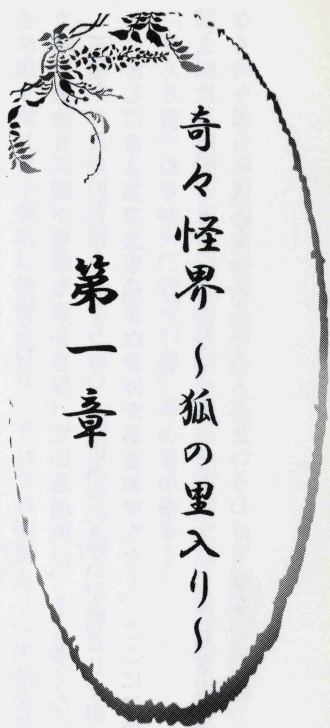 奇々怪界 〜狐の里入り〜
第一章